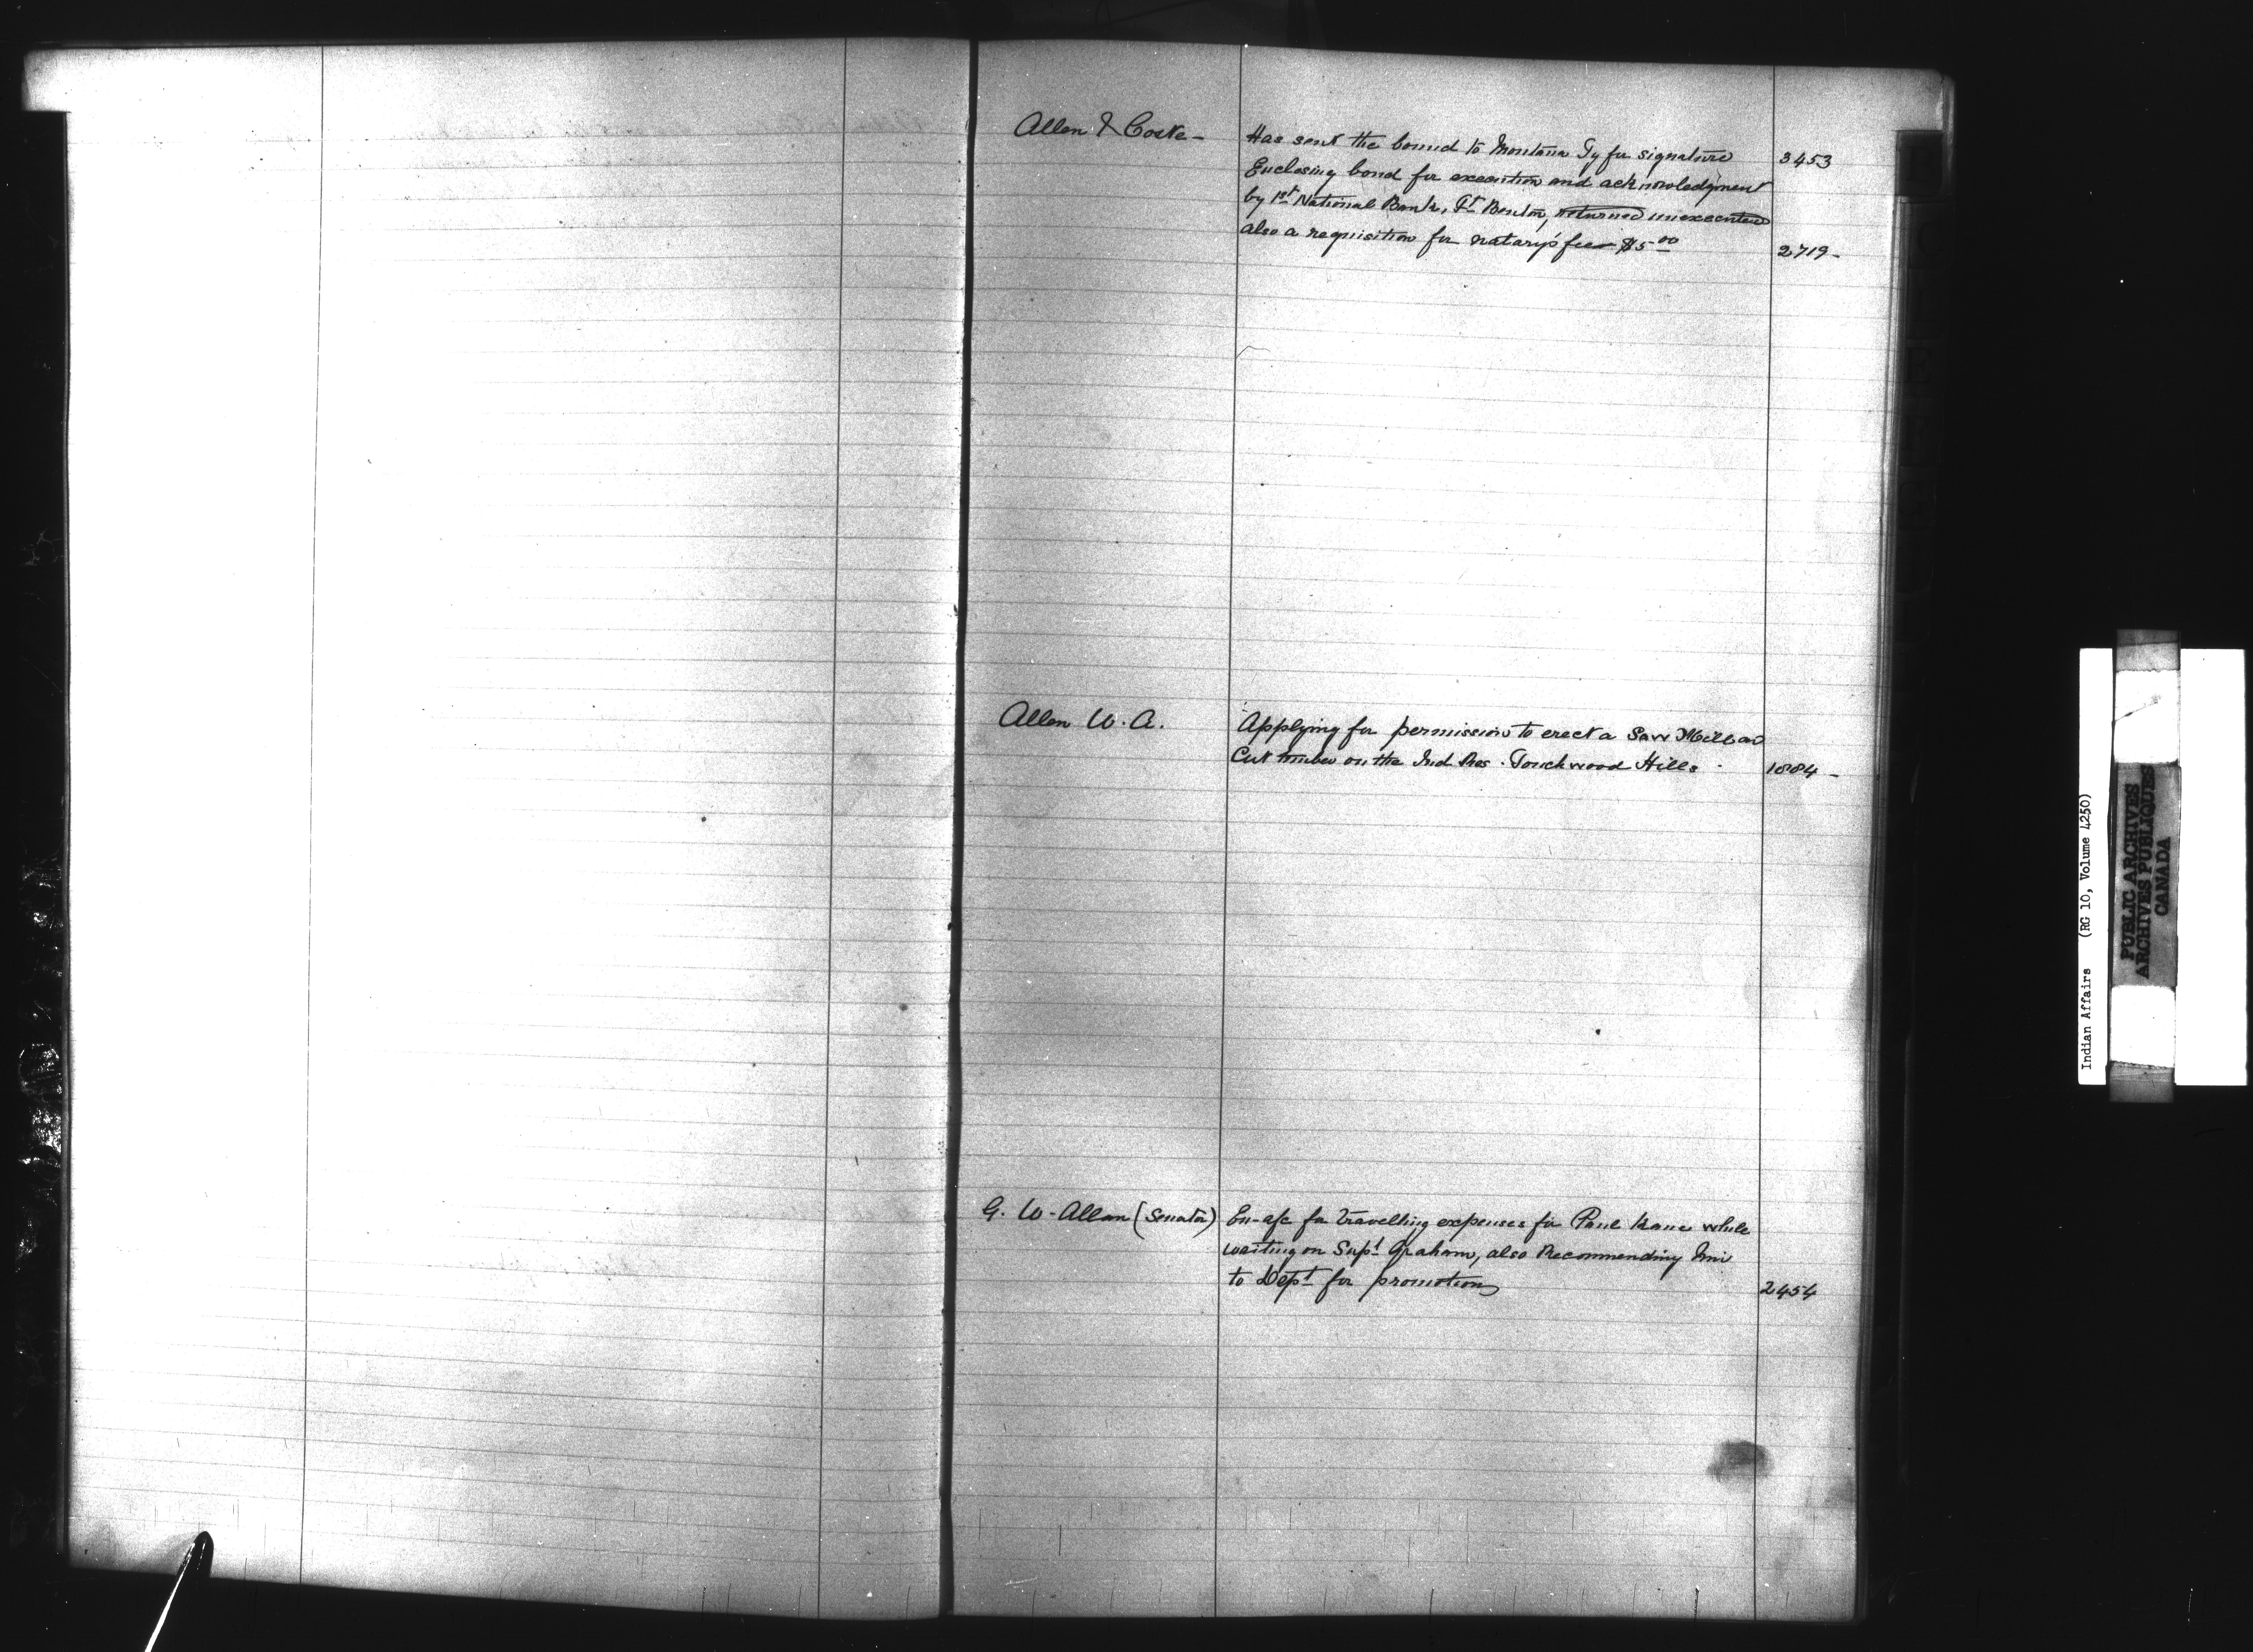 Allen & Coske -
Has sent the bound to Montana Ty for signature 3453
Enclosing bond for execution and acknowledgment
by 1st National Bank, Ft Benton, returned unexecuted
also a requisition for notary's fees $5 00 2719 -
Allen W. A.
Applying for permission to erect a Saw Mill and
Cut timber on the Ind Res. Touchwood Hills 1884 -
G. W. Allan (Senator)
En- a/c for travelling expenses for Paul Kane while
waiting on Supt Graham, also Recommending him
to Dept for promotion 2454
Indian Affairs (RG 10, Volume 4250)
PUBLIC ARCHIVES
ARCHIVES PUBLIQUES
CANADA